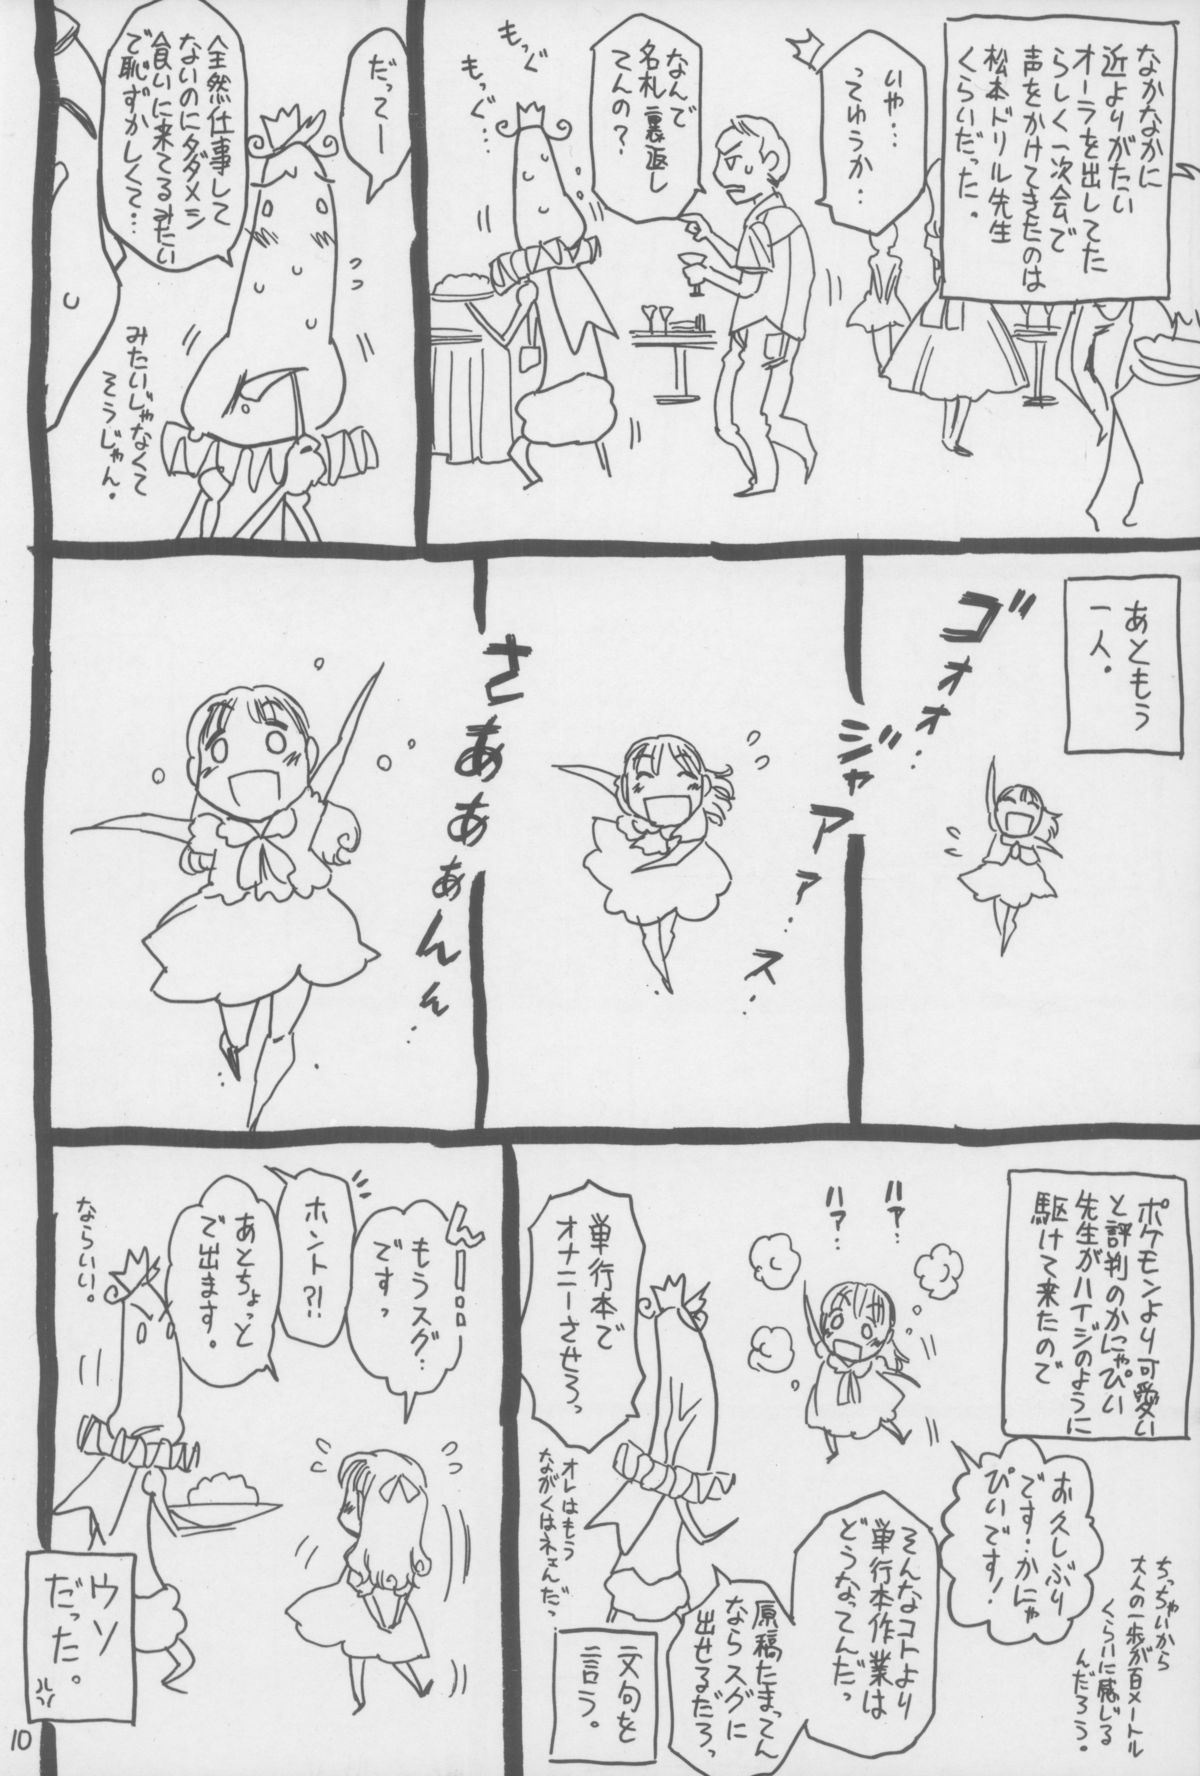 なかなかに
近よりがたい
オーラを出してた
らしく一次会で
声をかけてきたのは
松本ドリル先生
くらいだった。
いや…
ってゆうか…
なんで
名札裏返し
てんの?
もっぐ
もっぐ…
だってー
全然仕事して
ないのにタダメシ
食いに来てるみたい
で恥ずかしくて…
みたいじゃなくて
そうじゃん。
あともう
一人。
ゴォォォ…
ジャアアァ…ス…
さあああぁんん…
ポケモンより可愛い
と評判のかにゃぴい
先生がハイジのように
駆けて来たので
ハァ…
ハァ…
お久しぶり
です…かにゃ
ぴいです!
ちっちゃいから
大人の一歩が百メートル
くらいに感じる
んだろう。
そんなコトより
単行本作業は
どうなってんだっ
原稿たまってん
ならスグに
出せるだろっ
単行本で
オナニーさせろっ
オレはもう
ながくはネェんだっ
文句を
言う。
んー…
もうスグ…
ですっ
ホント?!
あとちょっと
で出ます。
ならいい。
ウソ
だった。
10